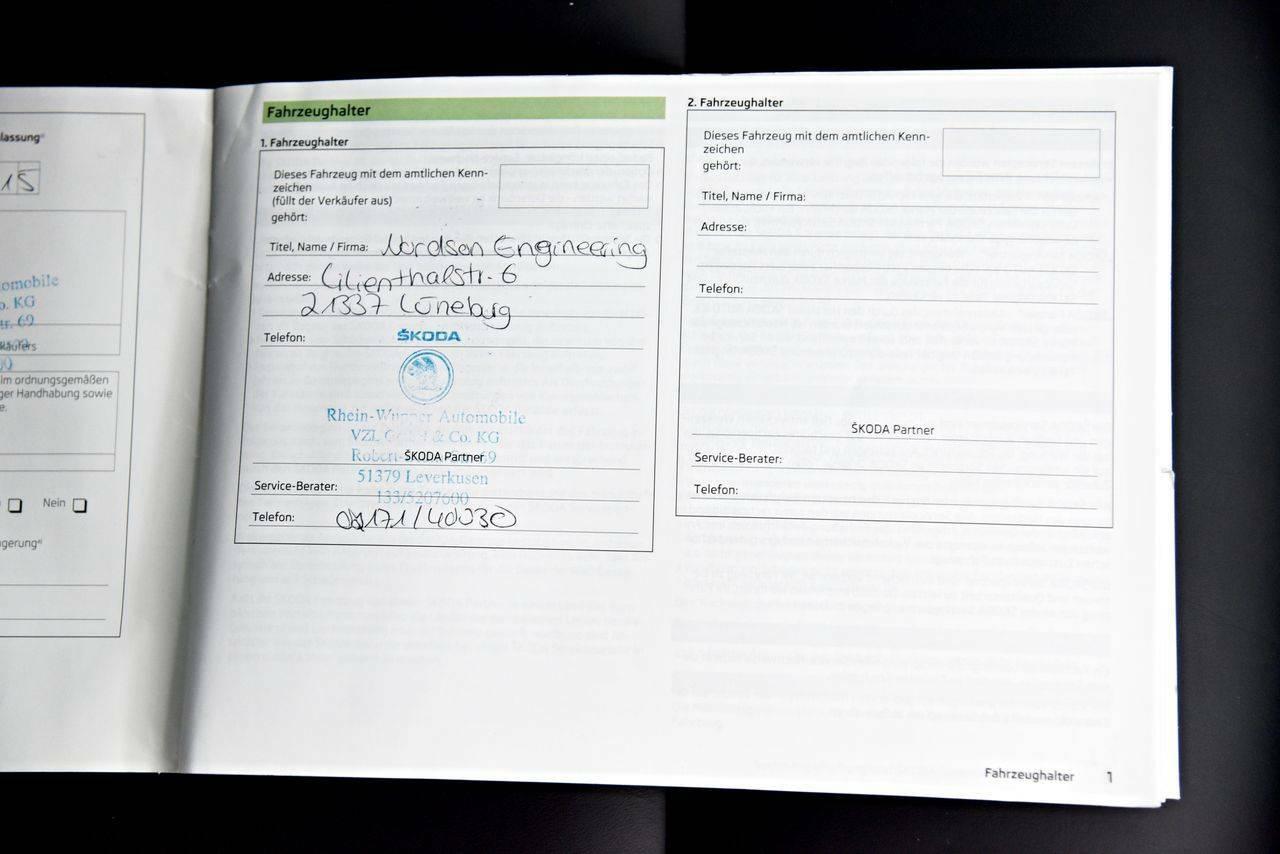 lassung
15
omobile
o. KG
tr. 69
käufers
im ordnungsgemäßen
ger Handhabung sowie
e.
Nein
gerung
Fahrzeughalter
1. Fahrzeughalter
Dieses Fahrzeug mit dem amtlichen Kenn-
zeichen
(füllt der Verkäufer aus)
gehört:
Titel, Name / Firma: Nordsen Engineering
Adresse: Lilienthalstr. 6
21337 Lüneburg
Telefon:
ŠKODA
Rhein-Wupper Automobile
VZL GmbH & Co. KG
69
ŠKODA Partner
51379 Leverkusen
Service-Berater:
133/5207600
Telefon: /40030
2. Fahrzeughalter
Dieses Fahrzeug mit dem amtlichen Kenn-
zeichen
gehört:
Titel, Name / Firma:
Adresse:
Telefon:
ŠKODA Partner
Service-Berater:
Telefon:
Fahrzeughalter 1